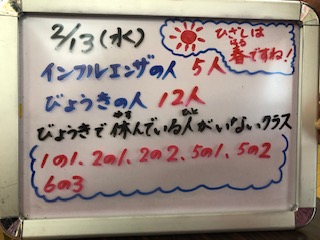 2/13(水)
ひざしは
春ですね!
はる
インフルエンザの人 5人
びょうきの人 12人
びょうきで休んでいる人がいないクラス
やす ひと
1の1、2の1、2の2、5の1、5の2
6の3